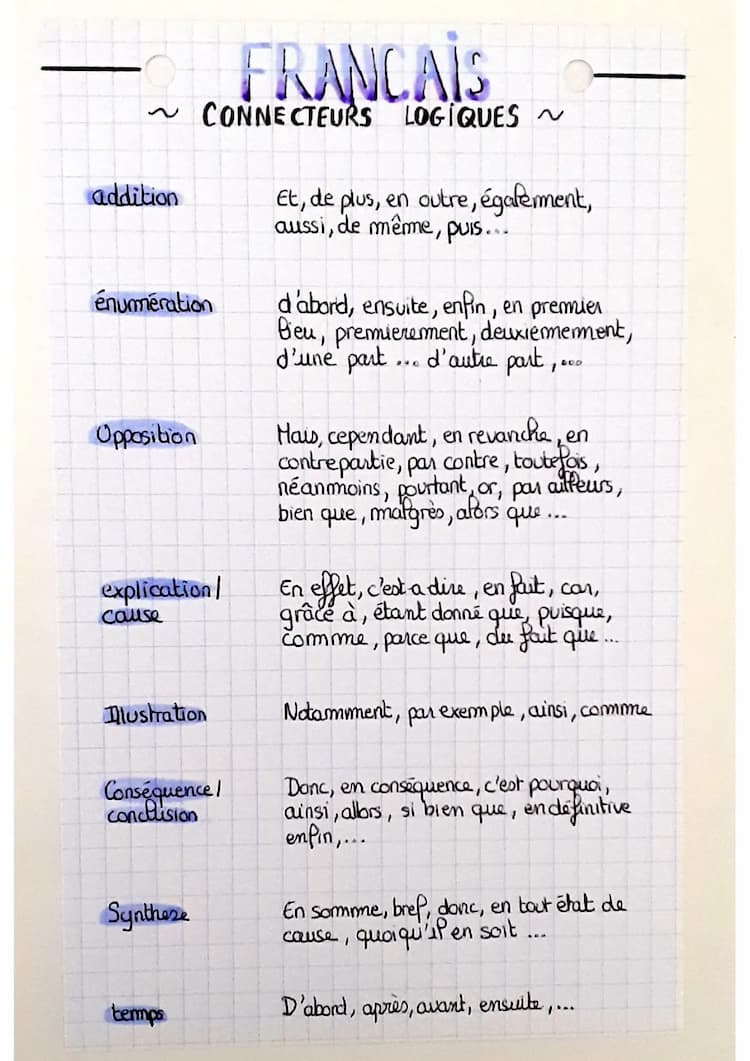 FRANCAIS
~ CONNECTEURS LOGIQUES ~
addition
Et, de plus, en outre, également,
aussi, de même, puis...
énumération
d'abord, ensuite, enfin, en premier
lieu, premierement, deuxiemement,
d'une part ... d'autre part, ...
Opposition
Mais, cependant, en revanche, en
contrepartie, par contre, toutefois,
néanmoins, pourtant, or, par ailleurs,
bien que, malgrès, alors que ...
explication /
cause
En effet, c'est a dire, en fait, car,
grâce à, étant donné que, puisque,
comme, parce que, du fait que ...
Illustration
Notamment, par exemple, ainsi, comme
Conséquence /
conclusion
Donc, en conséquence, c'est pourquoi,
ainsi, allors, si bien que, en définitive
enfin, ...
Synthese
En somme, bref, donc, en tout état de
cause, quoiqu'il en soit ...
temps
D'abord, après, avant, ensuite, ...